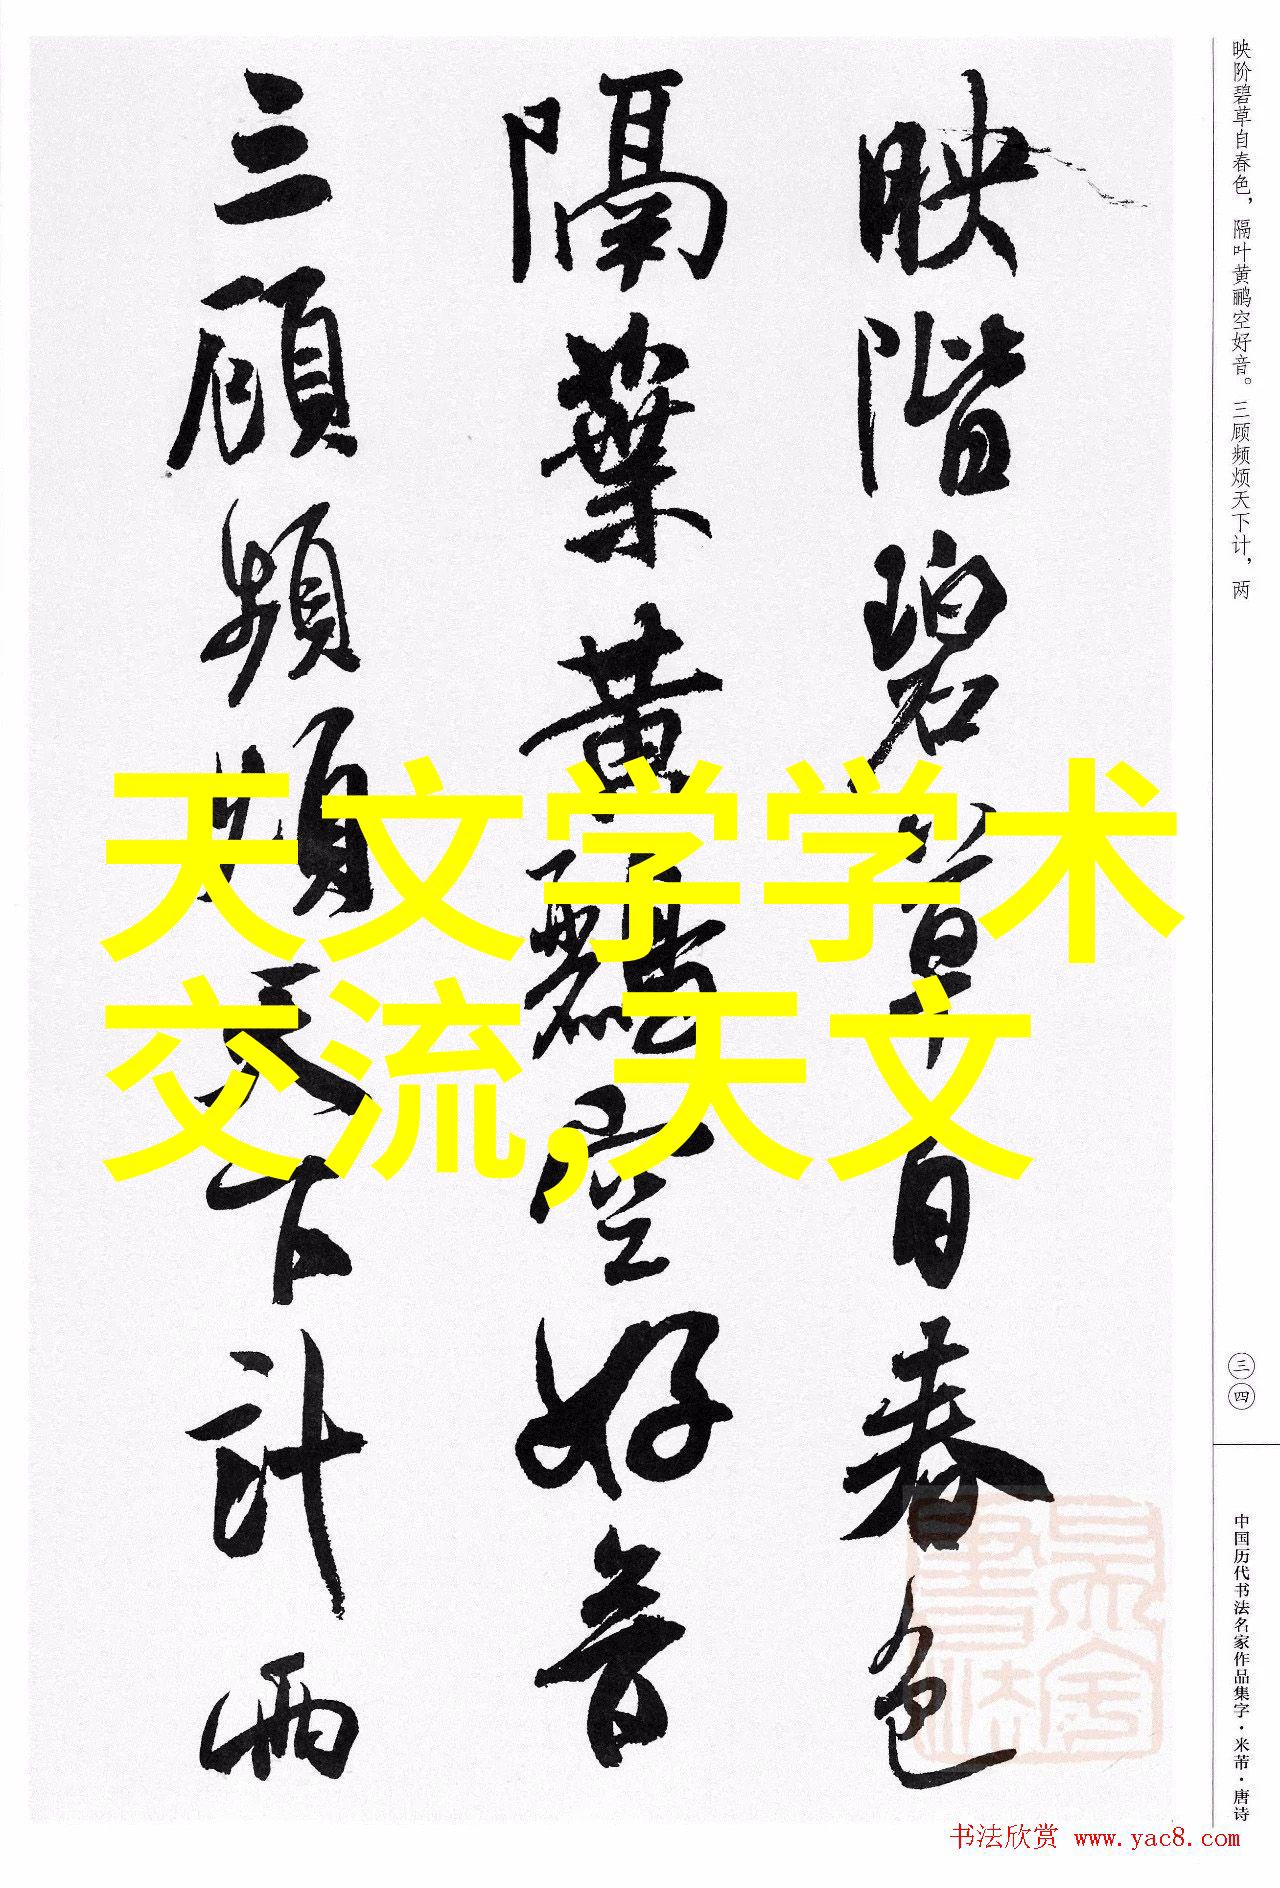 映階碧草自春色
隔葉黃鸝空好音
三顧頻煩天下計兩
天文学学术
交流,天文
映阶碧草自春色，隔叶黄鹂空好音。三顾频烦天下计，两
三四
中国历代书法名家作品集字·米芾·唐诗
书法欣赏 www.yac8.com